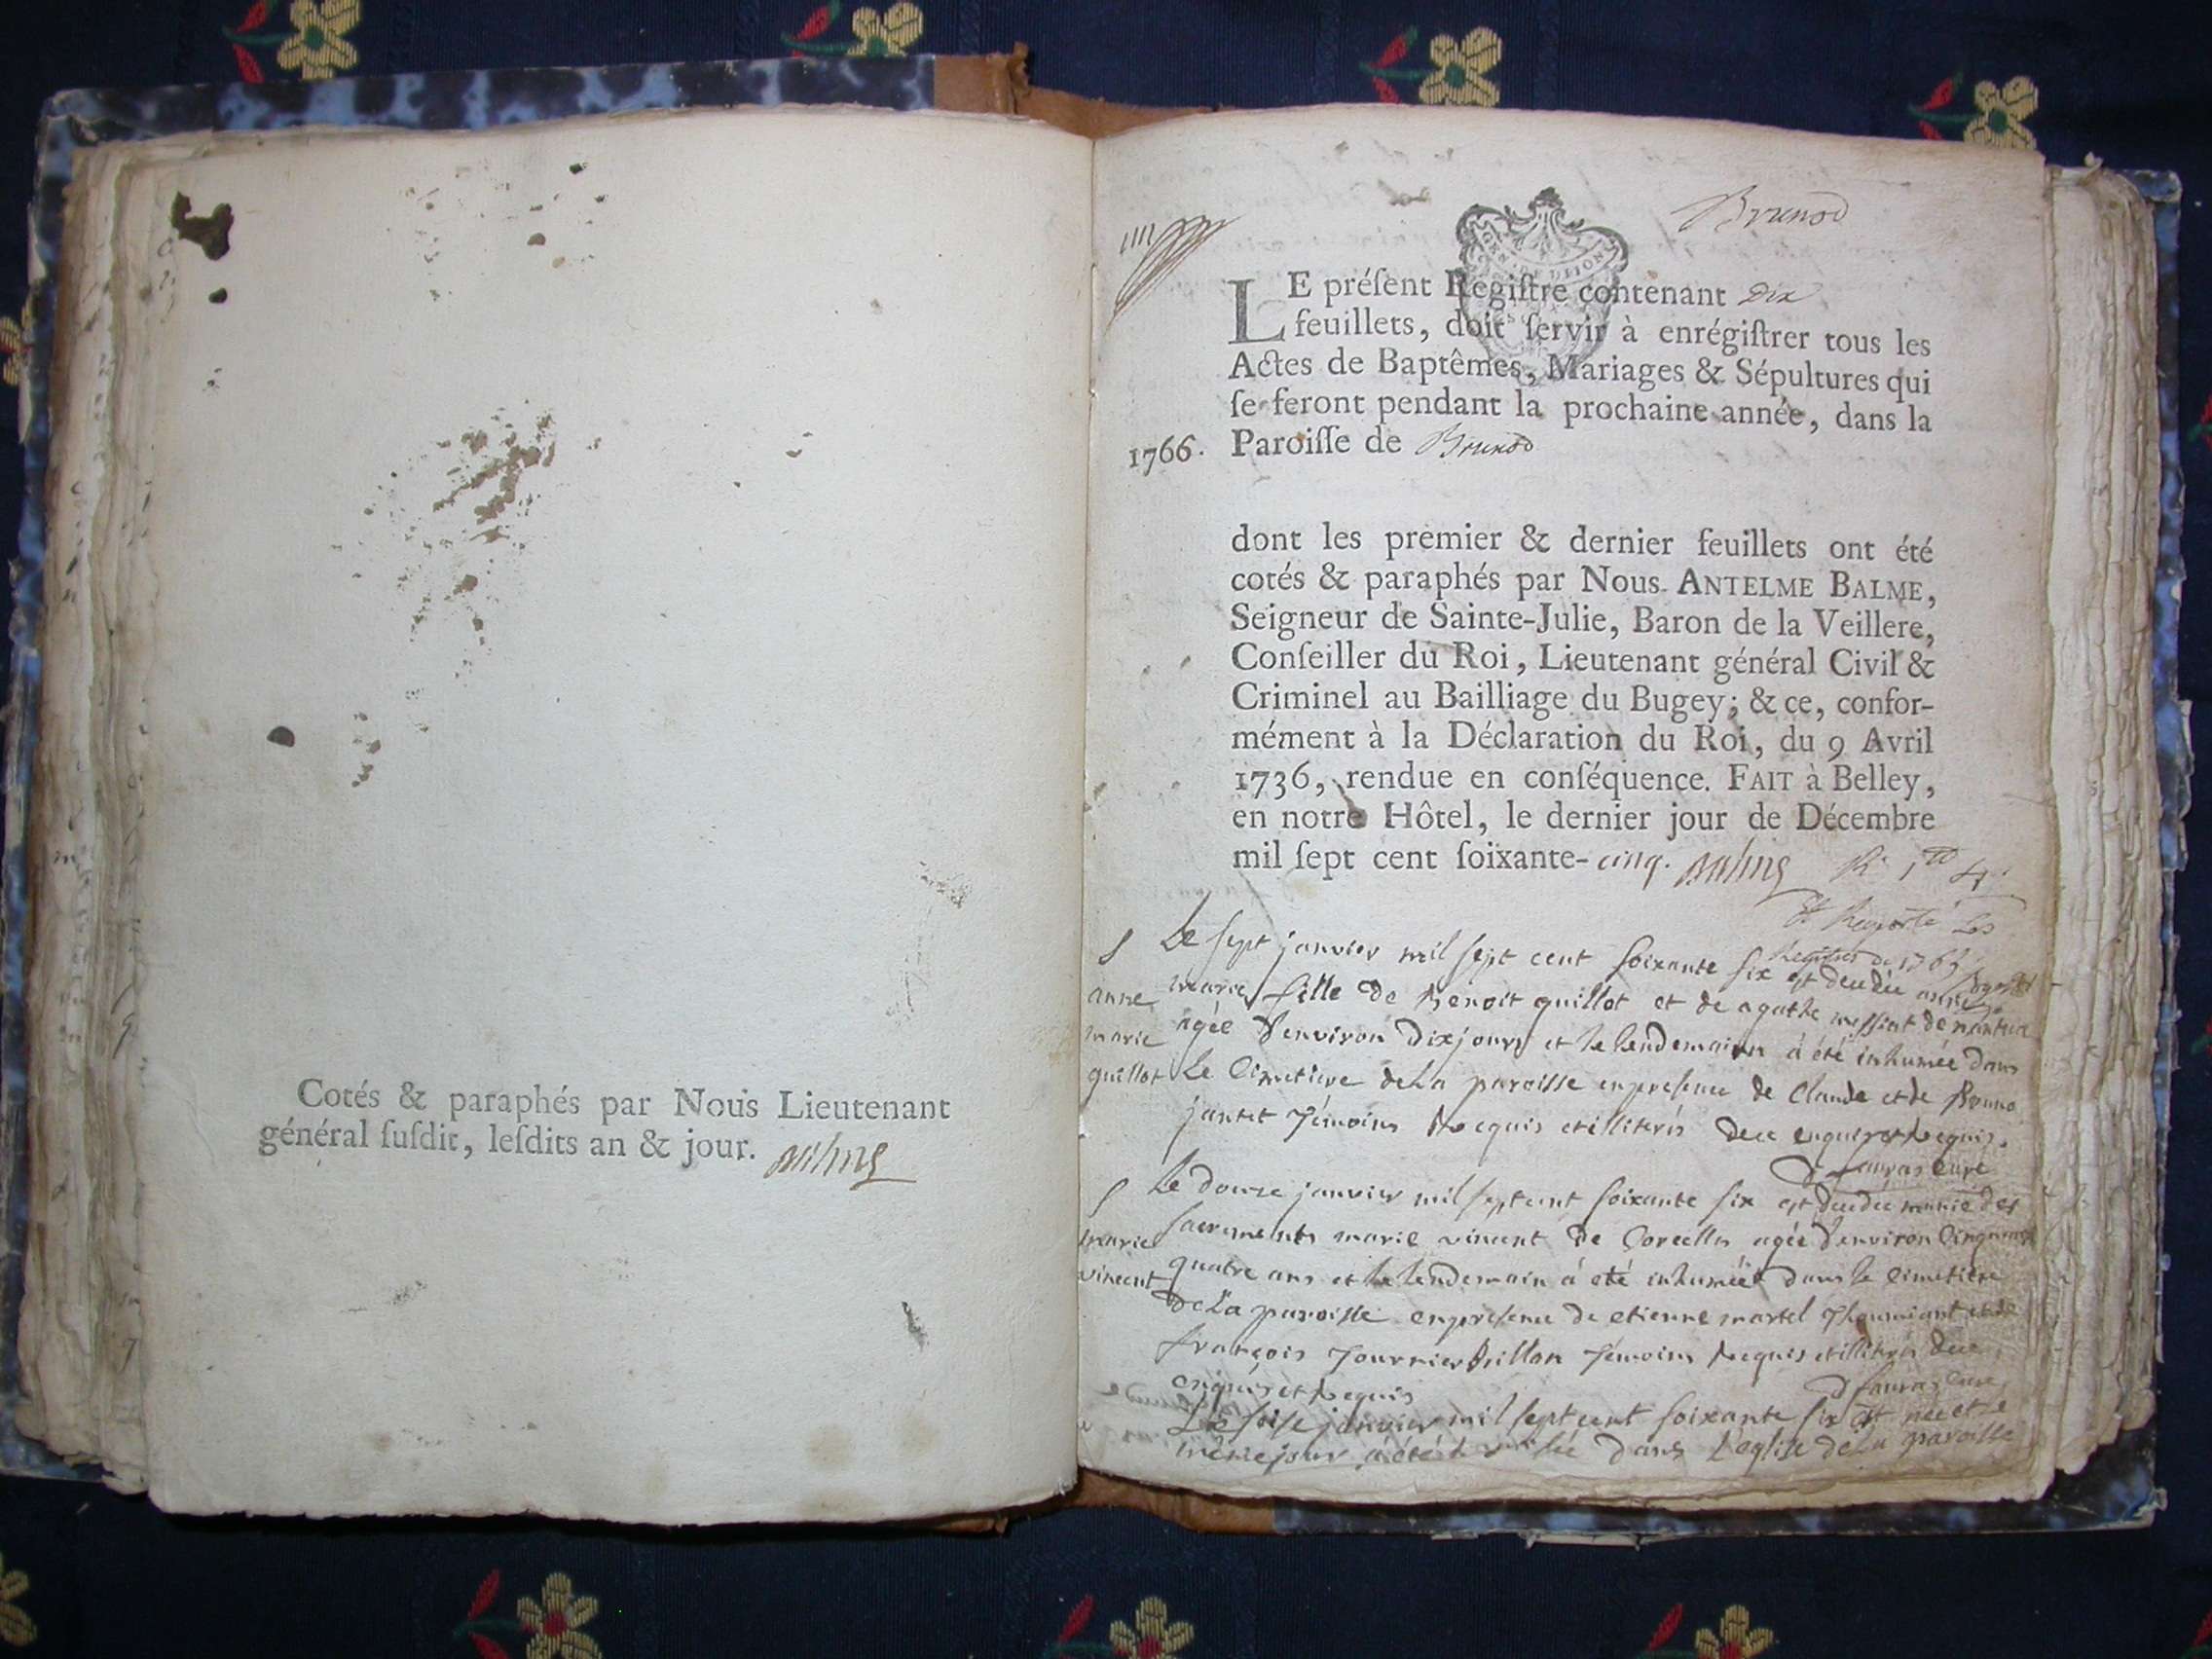 Cotés & paraphés par Nous Lieutenant
général ſuſdit, leſdits an & jour.
Brunod
LE préſent Regiſtre contenant Dix
feuillets, doit ſervir à enrégiſtrer tous les
Actes de Baptêmes, Mariages & Sépultures qui
ſe feront pendant la prochaine année, dans la
1766. Paroiſſe de Brunod
dont les premier & dernier feuillets ont été
cotés & paraphés par Nous ANTELME BALME,
Seigneur de Sainte-Julie, Baron de la Veillere,
Conſeiller du Roi, Lieutenant général Civil &
Criminel au Bailliage du Bugey; & ce, confor-
mément à la Déclaration du Roi, du 9 Avril
1736, rendue en conſéquence. FAIT à Belley,
en notre Hôtel, le dernier jour de Décembre
mil ſept cent ſoixante-cinq.
Reporté Les
Regitres de 1765
S Le sept janvier mil sept cent soixante six est decedée anne
anne marie fille de Benoit guillot et de agathe
marie agée d'environ dix jours et le lendemain a été inhumée dans
guillot Le Cimetiere de La paroisse en presence de Claude et de
jantet Témoins Requis et illiterés enquis et Requis.
curé
S Le douze janvier mil sept cent soixante six est decedée munie des
marie sacrements marie vincent de Corcelles agée d'environ Cinquante
vincent quatre ans et le lendemain a été inhumée dans le Cimetiere
de La paroisse en presence de etienne martel et de
françois Tournier Témoins Requis et illiterés
enquis et Requis
curé
Le seise janvier mil sept cent soixante six est née et le
même jour a été dans L'eglise de La paroisse